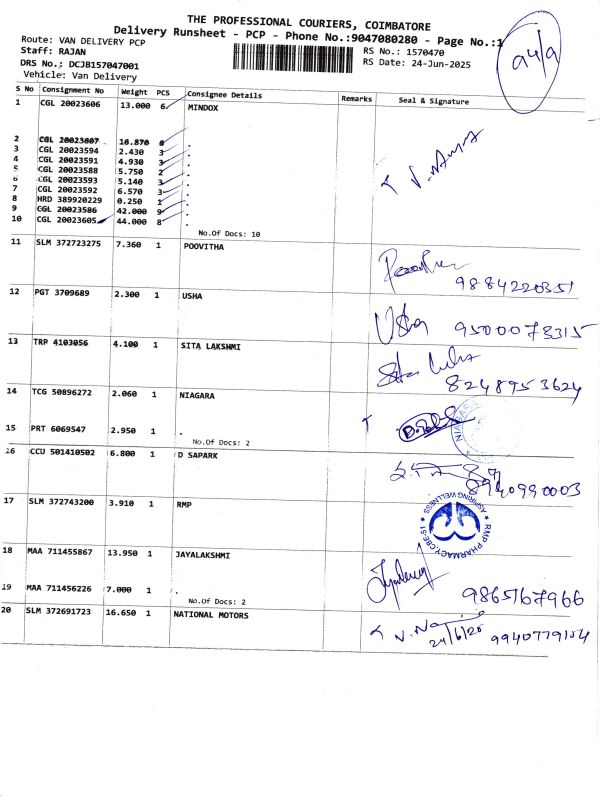 THE PROFESSIONAL COURIERS, COIMBATORE
Delivery Runsheet - PCP - Phone No.:9047080280 - Page No.:1
Route: VAN DELIVERY PCP
RS No.: 1570470
Staff: RAJAN
RS Date: 24-Jun-2025
DRS No.: DCJB157047001
Vehicle: Van Delivery
S No Consignment No Weight PCS Consignee Details Remarks Seal & Signature
1 CGL 20023606 13.000 6 MINDOX
2 CGL 20023607 16.870 6 .
3 CGL 20023594 2.430 3 .
4 CGL 20023591 4.930 3 .
5 CGL 20023588 5.750 2 .
6 CGL 20023593 5.140 3 .
7 CGL 20023592 6.570 3 .
8 HRD 389920229 0.250 1 .
9 CGL 20023586 42.000 9 .
10 CGL 20023605 44.000 8 .
No.Of Docs: 10
11 SLM 372723275 7.360 1 POOVITHA
9884220351
12 PGT 3709689 2.300 1 USHA
Usha 9500073315
13 TRP 4103056 4.100 1 SITA LAKSHMI
8248953624
14 TCG 50896272 2.060 1 NIAGARA
15 PRT 6069547 2.950 1 .
No.Of Docs: 2
16 CCU 501410502 6.800 1 D SAPARK
8940990003
17 SLM 372743200 3.910 1 RMP
ASPIRING WELLNESS
★ RMP PHARMACY CBE-51 ★
18 MAA 711455867 13.950 1 JAYALAKSHMI
9865167966
19 MAA 711456226 7.000 1 .
No.Of Docs: 2
20 SLM 372691723 16.650 1 NATIONAL MOTORS
24/6/25 9940779154